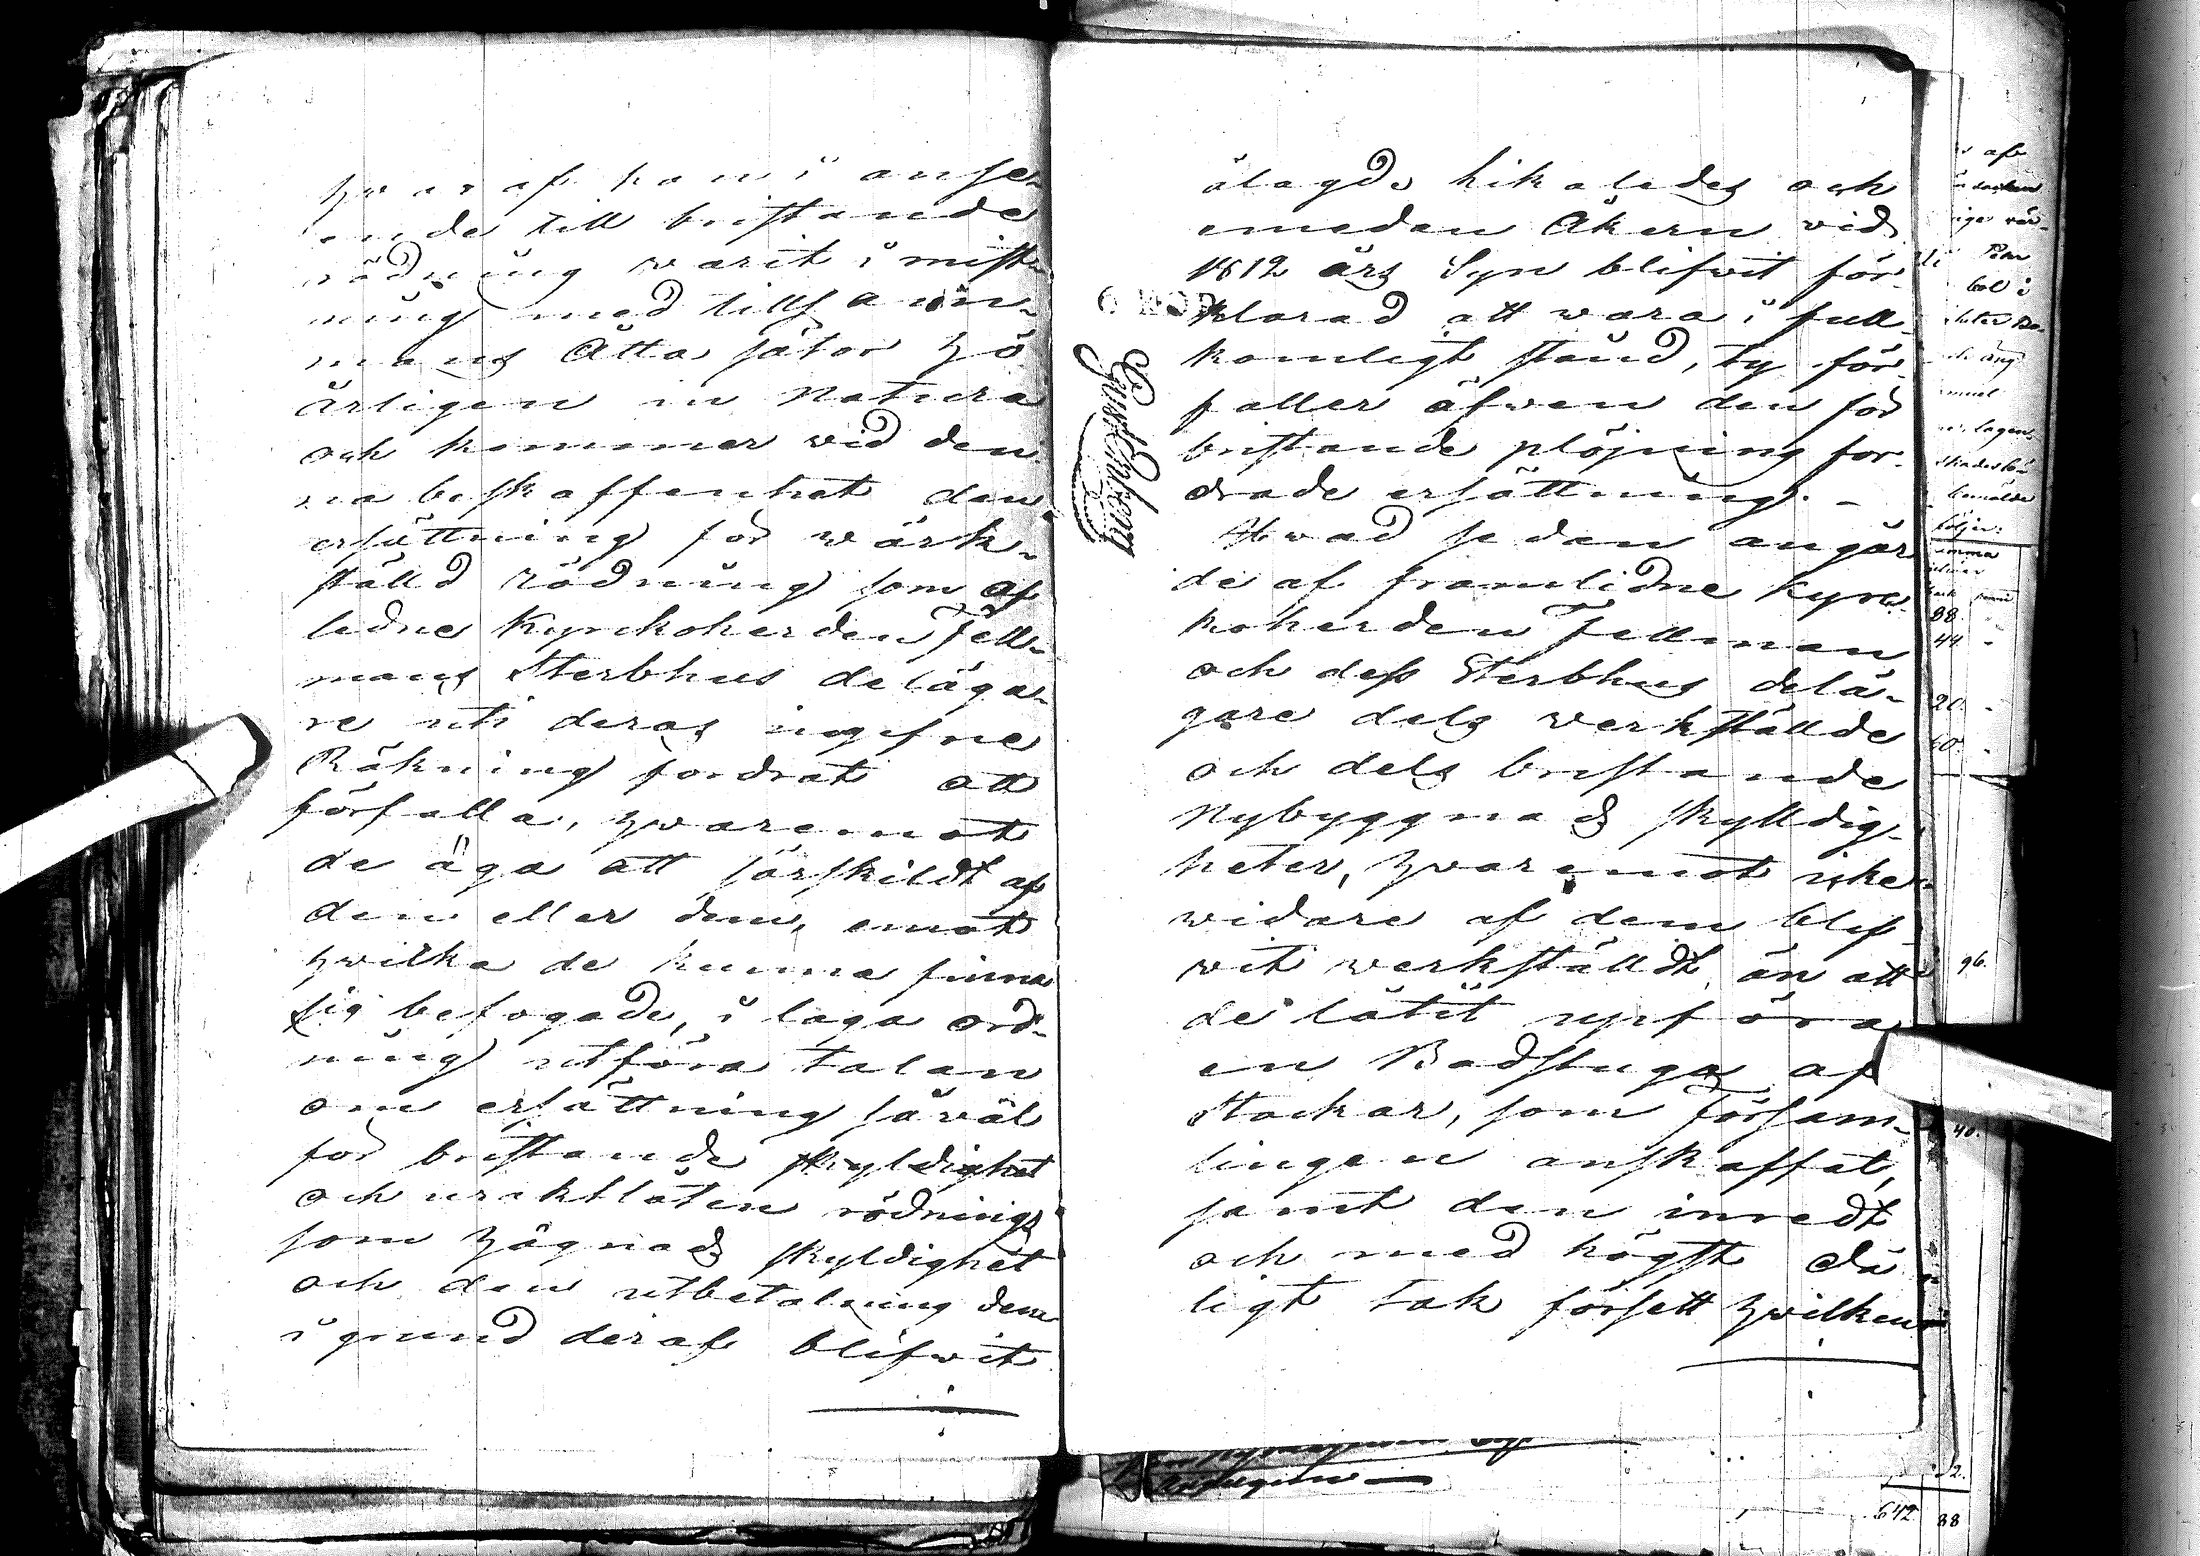 hwaraf han i anse-
ende till bristande
rödning warit i mist-
ning med tillsamm-
mans Åtta såtar hö
årligen in Natura
och kommer wid den-
na beskaffenhet den
ersättning för wärk-
ställd rödning som af
lidne Kyrckoherden Fell-
mans Sterbhus deläga-
re uti deras ingifne
Räkning fordrat att
förfalla, hwaremot
de äga att särskildt af
den eller dem, emot
hwilka de kunna finna
sig befogade, i laga ord-
ning utföra talan
om ersättning såwäl
för bristande skyldighet
och uraktlåten rödnings
som hägnads skyldighet
och den utbetalning dem
i grund deraf blifwit
ålagde likaledes och
emedan Åkern vid
1812 års Syn blifwit för-
klarad att wara i full-
komligt stånd, ty för-
faller äfwen den för
bristande plöjning for-
drade ersättning. –
Hwad sedan angår
de af framlidne Kyrc-
koherden Fellman
och dess Sterbhus delä-
gare dels werkställde
och dels bristande
Nybyggnads skylldig-
heter, hwaremot icke
widare af dem blif
wit werkställdt, än att
de låtit uppföra
en Badstuga af
Stockar, som Försam-
lingen anskaffat,
samt den inredt
och med högst då
ligt tak försett hwilken
af
96.
40.
642 88